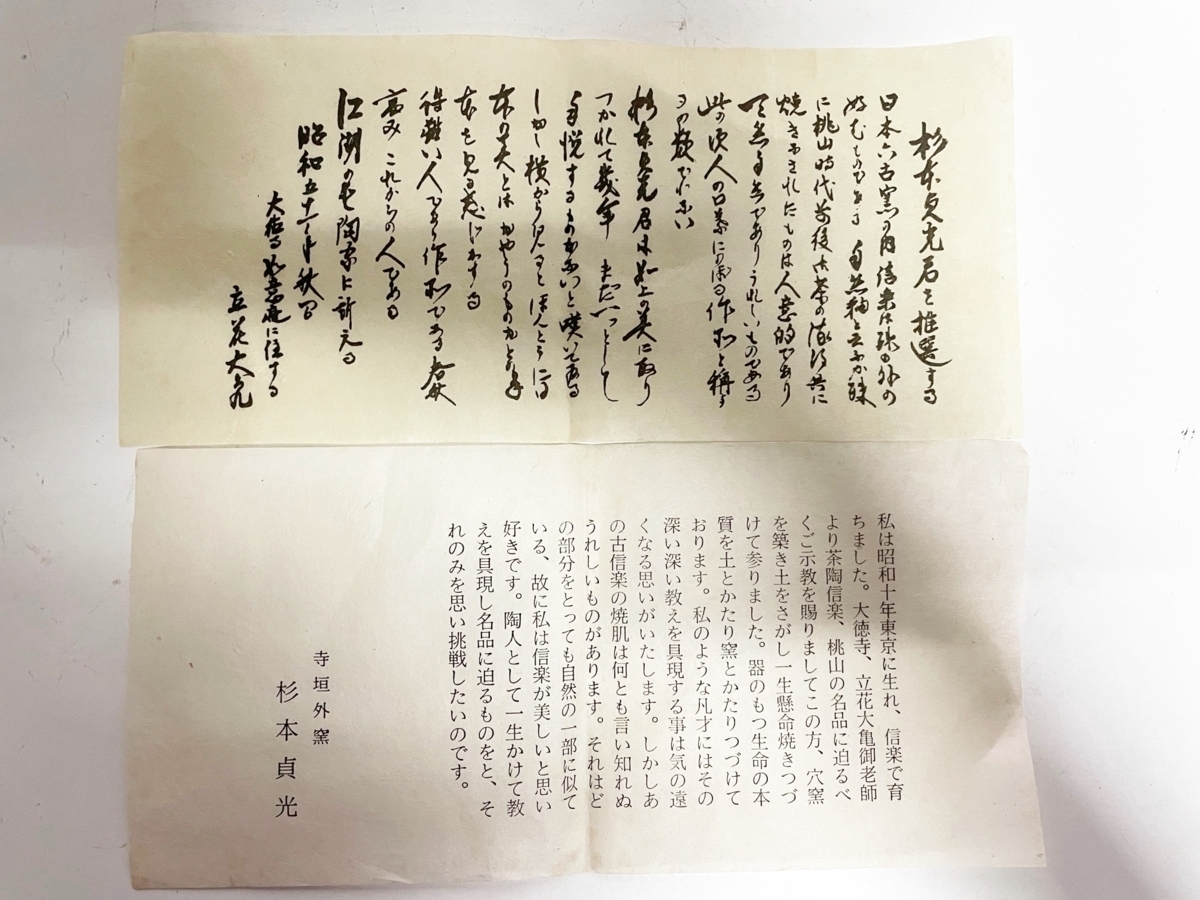 杉本貞光君を推選する
日本六古窯の内信楽は殊の外の
好むものである 自然釉と云ふか緑
に桃山時代前後は茶の流行共に
焼き出されたものは人意的であり
天然自然であり うれしいものである
此の頃人の口葉に
の類でない
杉本貞光君は如上の美に取り
つかれて幾年 まだ一つとして
自悦するものがないと嘆いてゐる
しかし横から見ると ほんとうに
本を見る感じがする
得難い人である 作
高み これからの人である
江湖の を 陶家に訴える
昭和五十一年秋
大徳寺 如意庵に住する
立花大亀
私は昭和十年東京に生れ、信楽で育
ちました。大徳寺、立花大亀御老師
より茶陶信楽、桃山の名品に迫るべ
くご示教を賜りましてこの方、穴窯
を築き土をさがし一生懸命焼きつづ
けて参りました。器のもつ生命の本
質を土とかたり窯とかたりつづけて
おります。私のような凡才にはその
深い深い教えを具現する事は気の遠
くなる思いがいたします。しかしあ
の古信楽の焼肌は何とも言い知れぬ
うれしいものがあります。それはど
の部分をとっても自然の一部に似て
いる、故に私は信楽が美しいと思い
好きです。陶人として一生かけて教
えを具現し名品に迫るものをと、そ
れのみを思い挑戦したいのです。
寺垣外窯
杉本貞光